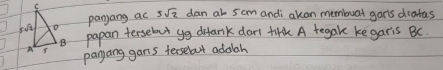 C
5√2
D
A
5
B
panjang ac 5√2 dan ab 5cm andi akan membuat garis diatas
papan tersebut yg ditarik dari titik A tegak ke garis BC.
panjang garis tersebut adalah